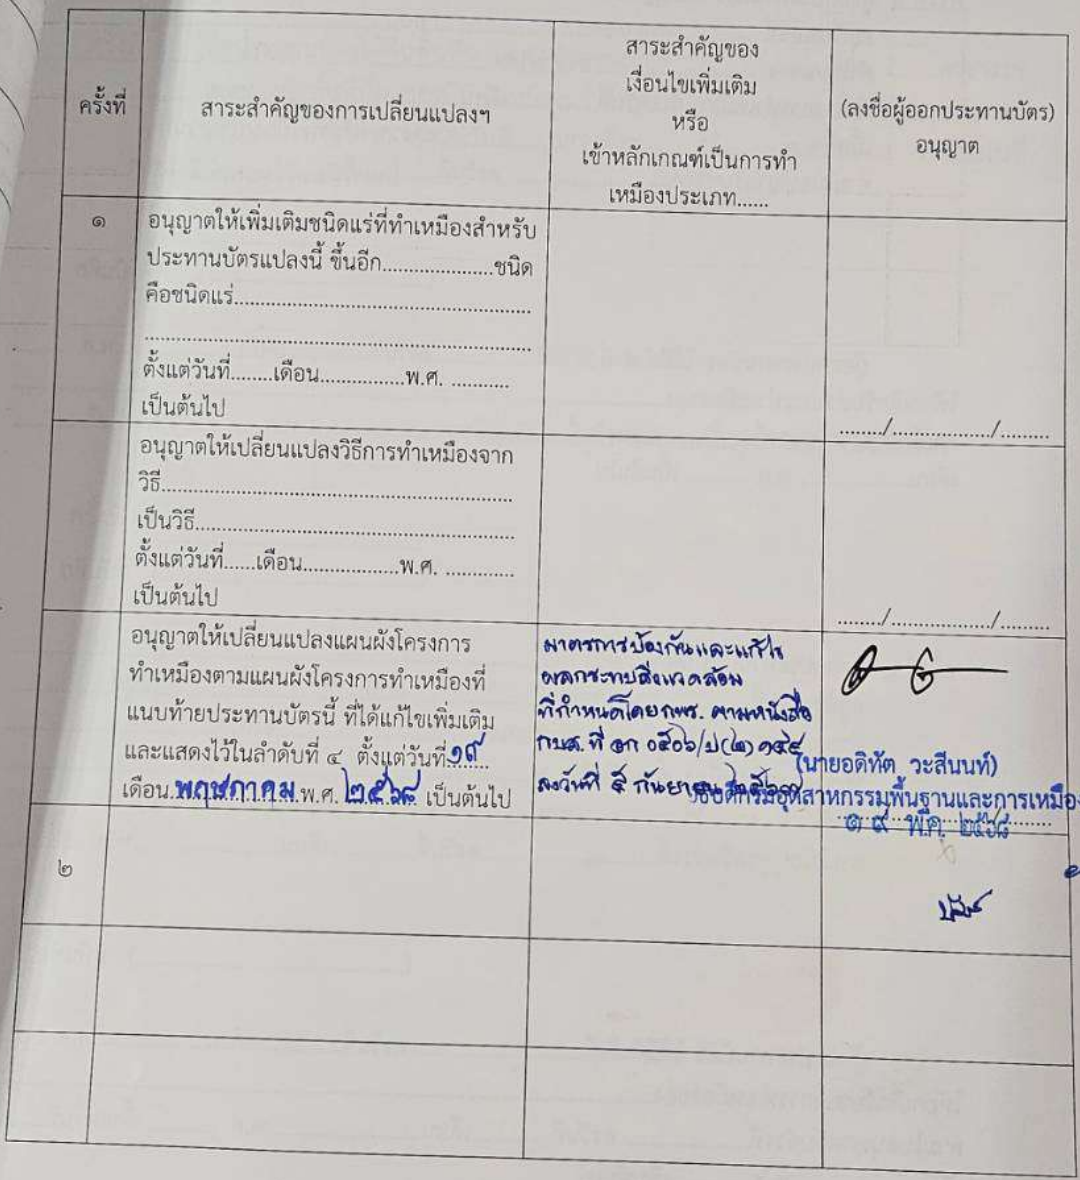 ครั้งที่
สาระสำคัญของการเปลี่ยนแปลงฯ
สาระสำคัญของ
เงื่อนไขเพิ่มเติม
หรือ
เข้าหลักเกณฑ์เป็นการทำ
เหมืองประเภท......
(ลงชื่อผู้ออกประทานบัตร)
อนุญาต
๑
อนุญาตให้เพิ่มเติมชนิดแร่ที่ทำเหมืองสำหรับ
ประทานบัตรแปลงนี้ ขึ้นอีก.....................ชนิด
คือชนิดแร่........................................................
.........................................................................
ตั้งแต่วันที่........เดือน................พ.ศ. ...........
เป็นต้นไป
......../................../.........
อนุญาตให้เปลี่ยนแปลงวิธีการทำเหมืองจาก
วิธี..................................................................
เป็นวิธี............................................................
ตั้งแต่วันที่......เดือน..................พ.ศ. .............
เป็นต้นไป
......../................../.........
อนุญาตให้เปลี่ยนแปลงแผนผังโครงการ
ทำเหมืองตามแผนผังโครงการทำเหมืองที่
แนบท้ายประทานบัตรนี้ ที่ได้แก้ไขเพิ่มเติม
และแสดงไว้ในลำดับที่ ๔ ตั้งแต่วันที่ ๑๙
เดือน พฤษภาคม พ.ศ. ๒๕๖๘ เป็นต้นไป
มาตรการป้องกันและแก้ไข
ผลกระทบสิ่งแวดล้อม
ที่กำหนดโดย กพร. ตามหนังสือ
กบส. ที่ อก ๐๕๐๖/ป(๒) ๑๕๕
ลงวันที่ ๕ กันยายน
(นายอดิทัต วะสีนนท์)
อธิบดีกรมอุตสาหกรรมพื้นฐานและการเหมือง
๑๙ พ.ค. ๒๕๖๘
๒